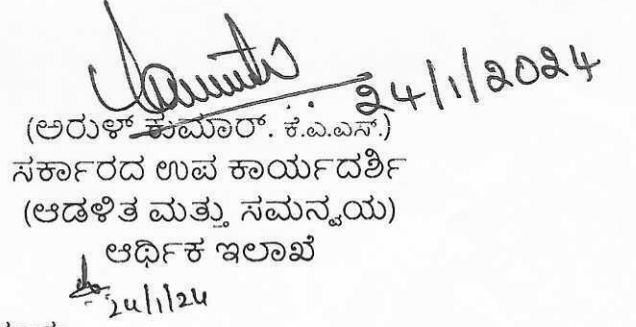 24/1/2024
(ಅರುಳ್ ಕುಮಾರ್. ಕೆ.ಎ.ಎಸ್.)
ಸರ್ಕಾರದ ಉಪ ಕಾರ್ಯದರ್ಶಿ
(ಆಡಳಿತ ಮತ್ತು ಸಮನ್ವಯ)
ಆರ್ಥಿಕ ಇಲಾಖೆ
24/1/24